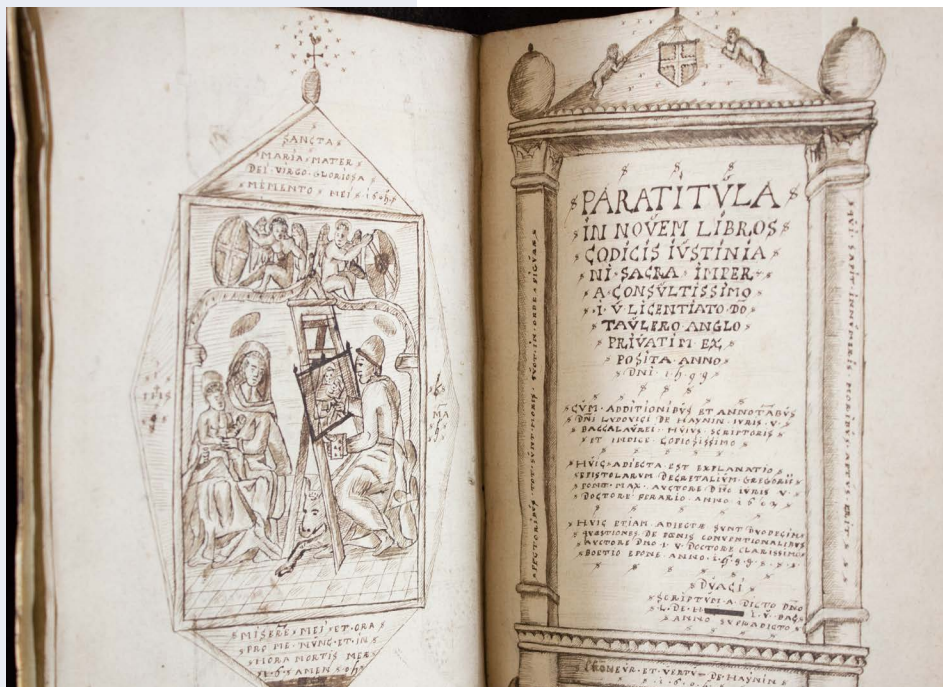 SANCTA
MARIA MATER
DEI VIRGO GLORIOSA
MEMENTO MEI
MISERE MEI ET ORA
PRO ME NUNC ET IN
HORA MORTIS MEE
AMEN
PARATITVLA
IN NOVEM LIBROS
CODICIS IVSTINIA
NI SACRA IMPER
A CONSVLTISSIMO
I V LICENTIATO DÕ
TAVLERO ANGLO
PRIVATIM EX
POSITA ANNO
DNI 1599
CVM ADDITIONIBVS ET ANNOTABVS
DÑI LVDOVICI DE HAYNIN IVRIS V
BACCALAVREI HVIVS SCRIPTORIS
ET INDICE COPIOSISSIMO
HVIC ADIECTA EST EXPLANATIO
EPISTOLARVM DECRETALIVM GREGORII
PONT MAX AVCTORE DÑO IVRIS V
DOCTORE PERARIO ANNO
HVIC ETIAM ADIECTÆ SVNT DVODECIM
QVÆSTIONES DE PŒNIS CONVENTIONALIBVS
AVCTORE DNO I V DOCTORE CLARISSIMO
BOETIO EPONE ANNO
DVACI
SCRIPTVM A DICTO DÑO
L DE H I V BAC
ANNO SVPRADICTO
PECTORIBVS TOT SVNT MORES QVOT IN ORBE FIGVRÆ
QVI SAPIT INNVMERIS MORIBVS APTVS ERIT
ET VERTV DE HAYNIN